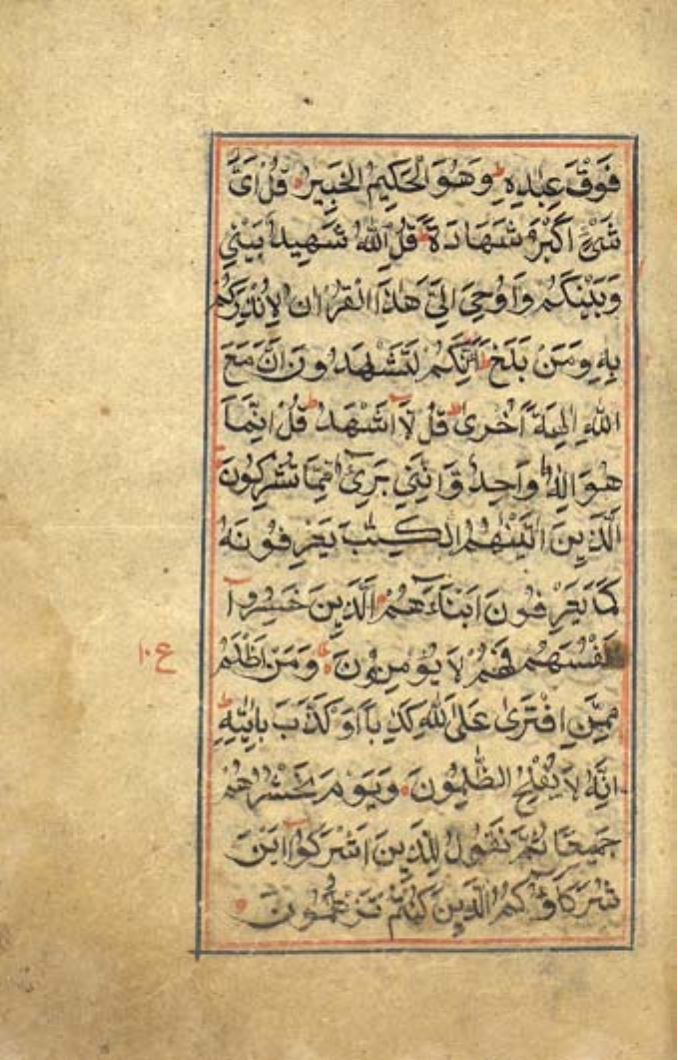 فَوْقَ عِبَادِهٖ ؕ وَهُوَ الْحَكِيْمُ الْخَبِيْرُ قُلْ اَىُّ
شَىْءٍ اَكْبَرُ شَهَادَةً ؕ قُلِ اللّٰهُ شَهِيْدٌ بَيْنِىْ
وَبَيْنَكُمْ وَاُوْحِىَ اِلَىَّ هٰذَا الْقُرْاٰنُ لِاُنْذِرَكُمْ
بِهٖ وَمَنْ بَلَغَ ؕ اَئِنَّكُمْ لَتَشْهَدُوْنَ اَنَّ مَعَ
اللّٰهِ اٰلِهَةً اُخْرٰى ؕ قُلْ لَّا اَشْهَدُ ؕ قُلْ اِنَّمَا
هُوَ اِلٰهٌ وَّاحِدٌ وَّاِنَّنِىْ بَرِىْٓءٌ مِّمَّا تُشْرِكُوْنَ
اَلَّذِيْنَ اٰتَيْنٰهُمُ الْكِتٰبَ يَعْرِفُوْنَهٗ
كَمَا يَعْرِفُوْنَ اَبْنَآءَهُمْ ۘ اَلَّذِيْنَ خَسِرُوْٓا
اَنْفُسَهُمْ فَهُمْ لَا يُؤْمِنُوْنَ وَمَنْ اَظْلَمُ
ع ١٠
مِمَّنِ افْتَرٰى عَلَى اللّٰهِ كَذِبًا اَوْ كَذَّبَ بِاٰيٰتِهٖ ؕ
اِنَّهٗ لَا يُفْلِحُ الظّٰلِمُوْنَ وَيَوْمَ نَحْشُرُهُمْ
جَمِيْعًا ثُمَّ نَقُوْلُ لِلَّذِيْنَ اَشْرَكُوْٓا اَيْنَ
شُرَكَآؤُكُمُ الَّذِيْنَ كُنْتُمْ تَزْعُمُوْنَ